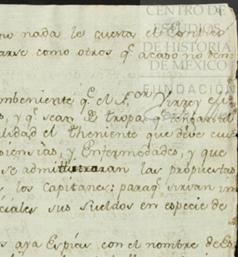 CENTRO DE
ESTUDIOS
DE HISTORIA
DE MÉXICO
FUNDACIÓN
no nada le cuesta el
arse como otros q.e acaso no
mbeniente q.e el S.or Virrey eli
y q.e sean de tropa,
lidad el Theniente que deve
siencias, y Enfermedades, y que
se admittieran las propuestas
los Capitanes; paraq.e vivan in
ciales sus Sueldos en especie de
aya Espías con el nombre de